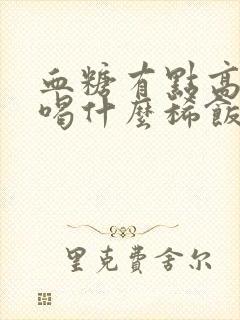 血糖有點高
喝什麼稀飯
里克費舍尔